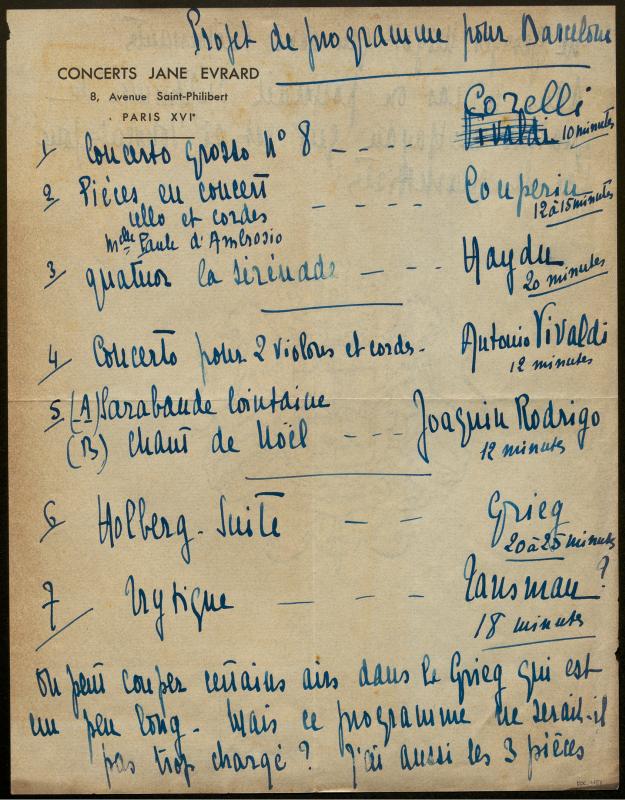 Projet de programme pour Barcelone
CONCERTS JANE EVRARD
8, Avenue Saint-Philibert
PARIS XVIe
Corelli
1 Concerto Grosso N° 8 - - - - Vivaldi 10 minutes
2 Pièces en concert
cello et cordes - - - - Couperin 12 à 15 minutes
Melle Paule d'Ambrosio
3 quatuor la sérénade - - - Haydn
20 minutes
4 Concerto pour 2 violons et cordes - Antonio Vivaldi
12 minutes
5 (A) Sarabande lointaine
(B) Chant de Noël - - - Joaquin Rodrigo
12 minutes
6 Holberg-Suite - - Grieg
20 à 25 minutes
7 Tryptique - - - Tansman ?
18 minutes
On peut couper certains airs dans le Grieg qui est
un peu long. Mais ce programme ne serait-il
pas trop chargé ? J'ai aussi les 3 pièces